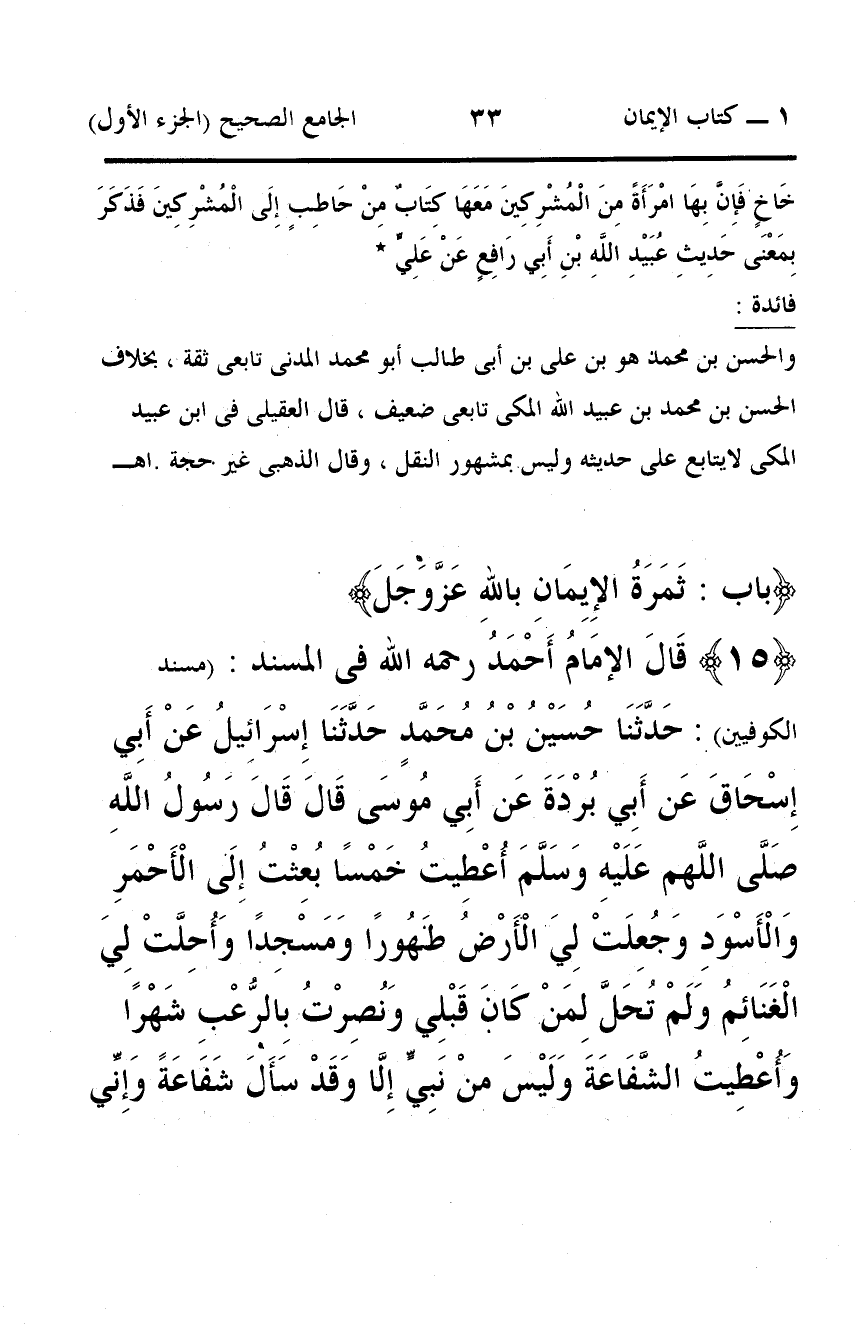 ١ ــ كتاب الإيمان ٣٣ الجامع الصحيح (الجزء الأول)
خَاخٍ فَإِنَّ بِهَا امْرَأَةً مِنَ الْمُشْرِكِينَ مَعَهَا كِتَابٌ مِنْ حَاطِبٍ إِلَى الْمُشْرِكِينَ فَذَكَرَ
بِمَعْنَى حَدِيثِ عُبَيْدِ اللَّهِ بْنِ أَبِي رَافِعٍ عَنْ عَلِيٍّ *
فائدة :
والحسن بن محمد هو بن على بن أبى طالب أبو محمد المدنى تابعى ثقة ، بخلاف
الحسن بن محمد بن عبيد الله المكى تابعى ضعيف ، قال العقيلى فى ابن عبيد
المكى لايتابع على حديثه وليس بمشهور النقل ، وقال الذهبى غير حجة .اهــ
﴿باب : ثَمَرَةُ الإِيمَانِ بِاللهِ عَزَّوَجَلَ﴾
﴿١٥﴾ قَالَ الإِمَامُ أَحْمَدُ رحمه الله فى المسند : (مسند
الكوفيين) : حَدَّثَنَا حُسَيْنُ بْنُ مُحَمَّدٍ حَدَّثَنَا إِسْرَائِيلُ عَنْ أَبِي
إِسْحَاقَ عَن أَبِي بُرْدَةَ عَن أَبِي مُوسَى قَالَ قَالَ رَسُولُ اللَّهِ
صَلَّى اللَّهم عَلَيْهِ وَسَلَّمَ أُعْطِيتُ خَمْسًا بُعِثْتُ إِلَى الْأَحْمَرِ
وَالْأَسْوَدِ وَجُعِلَتْ لِيَ الْأَرْضُ طَهُورًا وَمَسْجِدًا وَأُحِلَّتْ لِيَ
الْغَنَائِمُ وَلَمْ تُحَلَّ لِمَنْ كَانَ قَبْلِي وَنُصِرْتُ بِالرُّعْبِ شَهْرًا
وَأُعْطِيتُ الشَّفَاعَةَ وَلَيْسَ مِنْ نَبِيٍّ إِلَّا وَقَدْ سَأَلَ شَفَاعَةً وَإِنِّي